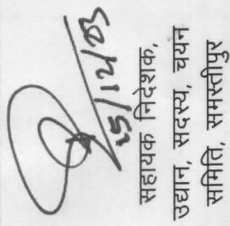 25/12/23
सहायक निदेशक,
उद्यान, सदस्य, चयन
समिति, समस्तीपुर